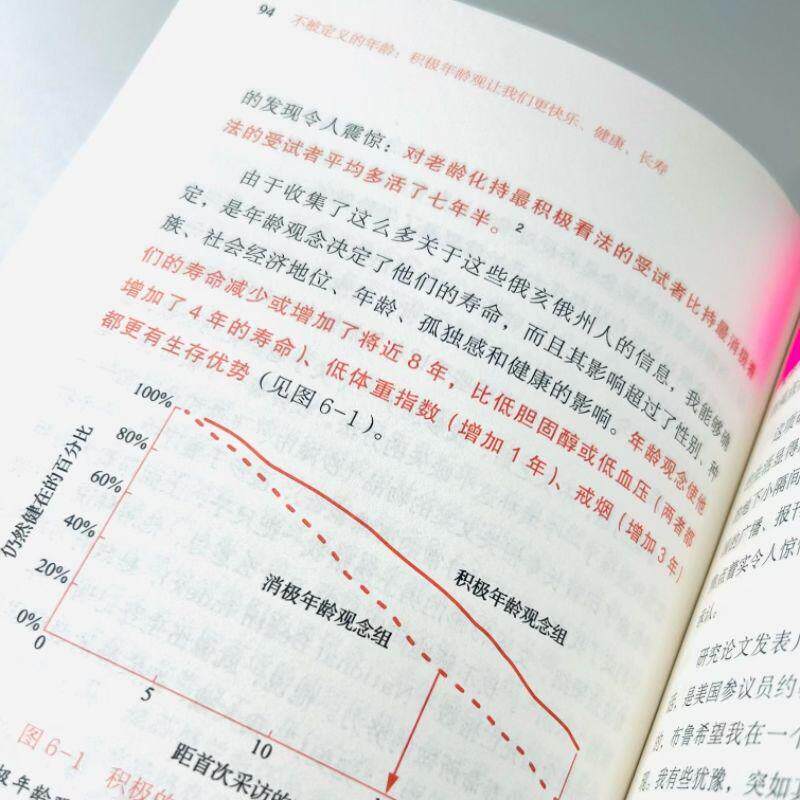 94 不被定义的年龄：积极年龄观让我们更快乐、健康、长寿
的发现令人震惊：对老龄化持最积极看法的受试者比持最消极看
法的受试者平均多活了七年半。2
由于收集了这么多关于这些俄亥俄州人的信息，我能够确
定，是年龄观念决定了他们的寿命，而且其影响超过了性别、种
族、社会经济地位、年龄、孤独感和健康的影响。年龄观念使他
们的寿命减少或增加了将近8年，比低胆固醇或低血压（两者都
增加了4年的寿命）、低体重指数（增加1年）、戒烟（增加3年）
都更有生存优势（见图6-1）。
仍然健在的百分比
100%
80%
60%
40%
20%
0%
0
5
10
消极年龄观念组
积极年龄观念组
距首次采访的
图6-1 积极的
极年龄观
下小隔间
的广播、报刊
着实令人惊
研究论文发表
是美国参议员约
布鲁希望我在一个
我有些犹豫，突如